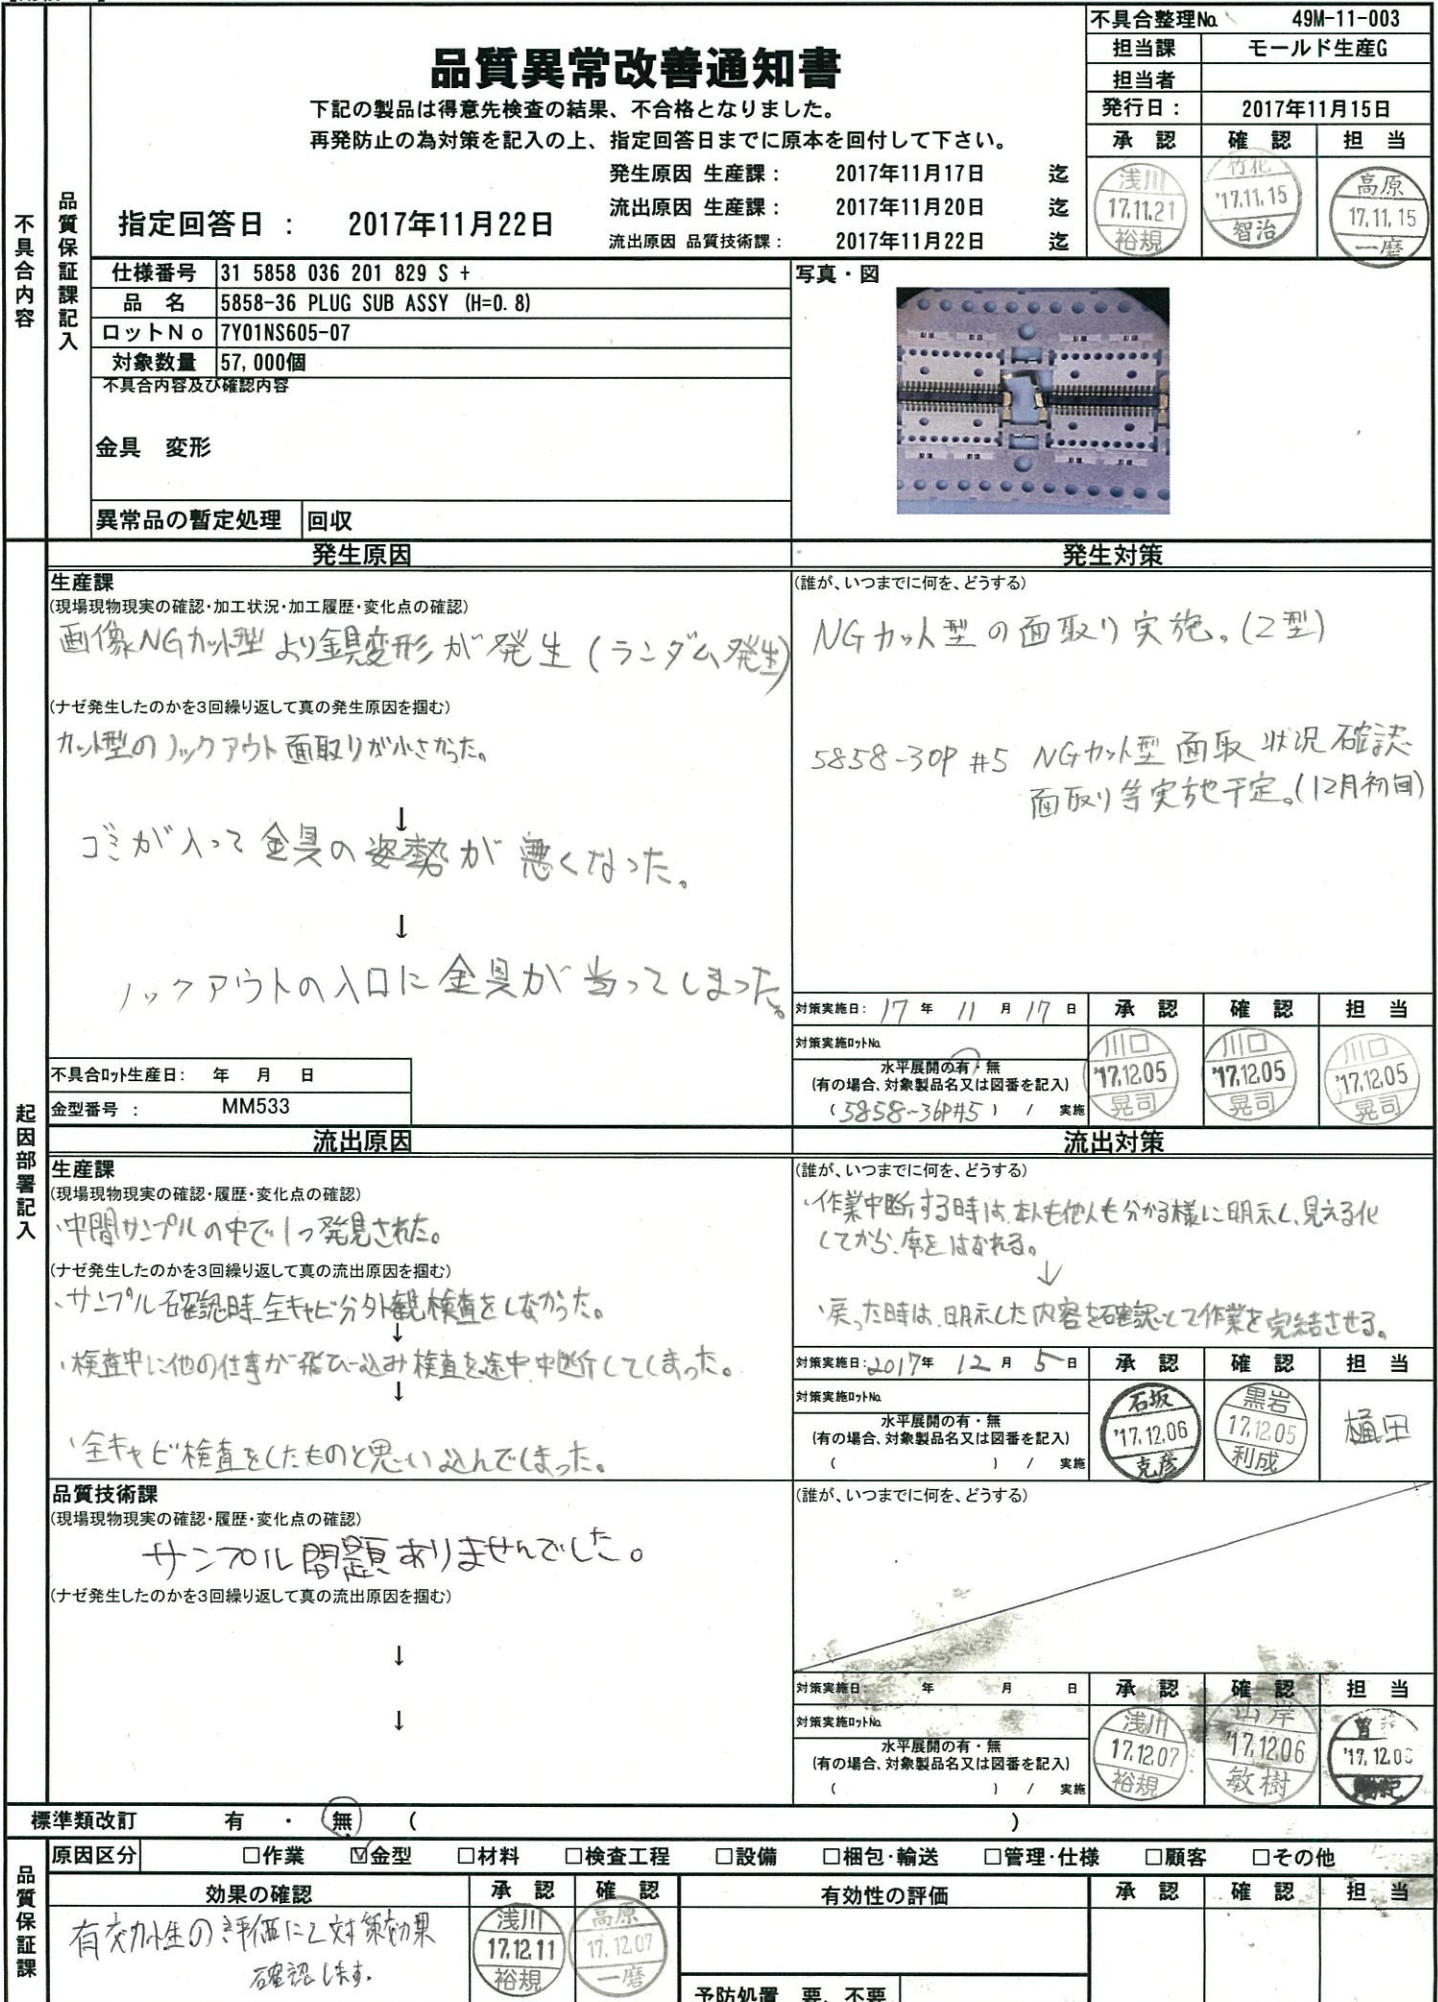 不具合整理No. 49M-11-003
担当課 モールド生産G
担当者
発行日： 2017年11月15日
承 認 確 認 担 当
浅川 17.11.21 裕規
竹花 '17.11.15 智治
高原 17.11.15 一磨
品質異常改善通知書
下記の製品は得意先検査の結果、不合格となりました。
再発防止の為対策を記入の上、指定回答日までに原本を回付して下さい。
発生原因 生産課： 2017年11月17日 迄
流出原因 生産課： 2017年11月20日 迄
流出原因 品質技術課： 2017年11月22日 迄
指定回答日 ： 2017年11月22日
不具合内容
品質保証課記入
仕様番号 31 5858 036 201 829 S +
品 名 5858-36 PLUG SUB ASSY (H=0.8)
ロットNo 7Y01NS605-07
対象数量 57,000個
不具合内容及び確認内容
金具 変形
異常品の暫定処理 回収
写真・図
起因部署記入
発生原因
生産課
(現場現物現実の確認・加工状況・加工履歴・変化点の確認)
画像NGカット型より金具変形が発生(ランダム発生)
(ナゼ発生したのかを3回繰り返して真の発生原因を掴む)
カット型のノックアウト面取りが小さかった。
↓
ゴミが入って金具の姿勢が悪くなった。
↓
ノックアウトの入口に金具が当ってしまった。
不具合ロット生産日： 年 月 日
金型番号 ： MM533
発生対策
(誰が、いつまでに何を、どうする)
NGカット型の面取り実施。(2型)
5858-30P #5 NGカット型面取状況確認
面取り等実施予定。(12月初旬)
対策実施日： 17 年 11 月 17 日
対策実施ロットNo.
水平展開の有・無
(有の場合、対象製品名又は図番を記入)
( 5858-36P#5 ) / 実施
承 認 確 認 担 当
川口 '17.12.05 晃司
川口 '17.12.05 晃司
川口 '17.12.05 晃司
流出原因
生産課
(現場現物現実の確認・履歴・変化点の確認)
・中間サンプルの中で1つ発見された。
(ナゼ発生したのかを3回繰り返して真の流出原因を掴む)
・サンプル確認時、全キャビ分外観検査をしなかった。
↓
・検査中に他の仕事が飛び込み検査を途中中断してしまった。
↓
・全キャビ検査をしたものと思い込んでしまった。
流出対策
(誰が、いつまでに何を、どうする)
・作業中断する時は、本人も他人も分かる様に明示し、見える化
してから、席をはなれる。
↓
・戻った時は、明示した内容を確認して作業を完結させる。
対策実施日： 2017年 12 月 5 日
対策実施ロットNo.
水平展開の有・無
(有の場合、対象製品名又は図番を記入)
( ) / 実施
承 認 確 認 担 当
石坂 '17.12.06 克彦
黒岩 17.12.05 利成
樋田
品質技術課
(現場現物現実の確認・履歴・変化点の確認)
サンプル問題ありませんでした。
(ナゼ発生したのかを3回繰り返して真の流出原因を掴む)
↓
↓
(誰が、いつまでに何を、どうする)
対策実施日： 年 月 日
対策実施ロットNo.
水平展開の有・無
(有の場合、対象製品名又は図番を記入)
( ) / 実施
承 認 確 認 担 当
浅川 17.12.07 裕規
山岸 '17.12.06 敏樹
'17.12.0
標準類改訂 有 ・ 無 ( )
品質保証課
原因区分 □作業 ☑金型 □材料 □検査工程 □設備 □梱包・輸送 □管理・仕様 □顧客 □その他
効果の確認 承 認 確 認 有効性の評価 承 認 確 認 担 当
有効性の評価にて対策効果
確認します。
浅川 17.12.11 裕規
高原 17.12.07 一磨
予防処置 要、不要